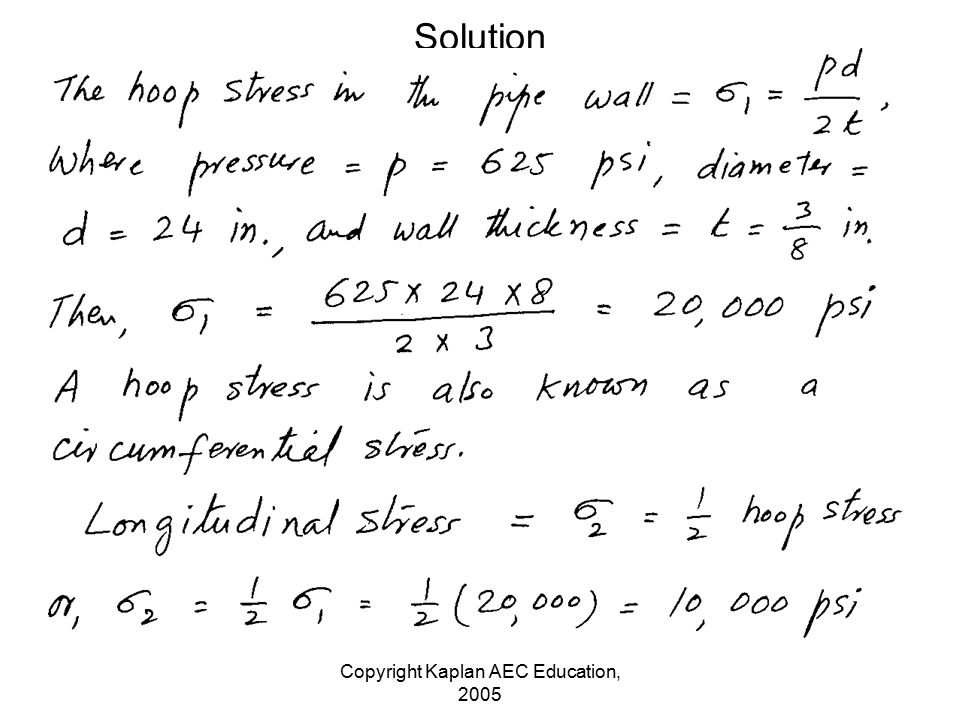 Solution
The hoop stress in the pipe wall = σ₁ = pd/2t,
Where pressure = p = 625 psi, diameter =
d = 24 in., and wall thickness = t = 3/8 in.
Then, σ₁ = 625 x 24 x 8 / 2 x 3 = 20,000 psi
A hoop stress is also known as a
circumferential stress.
Longitudinal stress = σ₂ = 1/2 hoop stress
or, σ₂ = 1/2 σ₁ = 1/2 (20,000) = 10,000 psi
Copyright Kaplan AEC Education,
2005